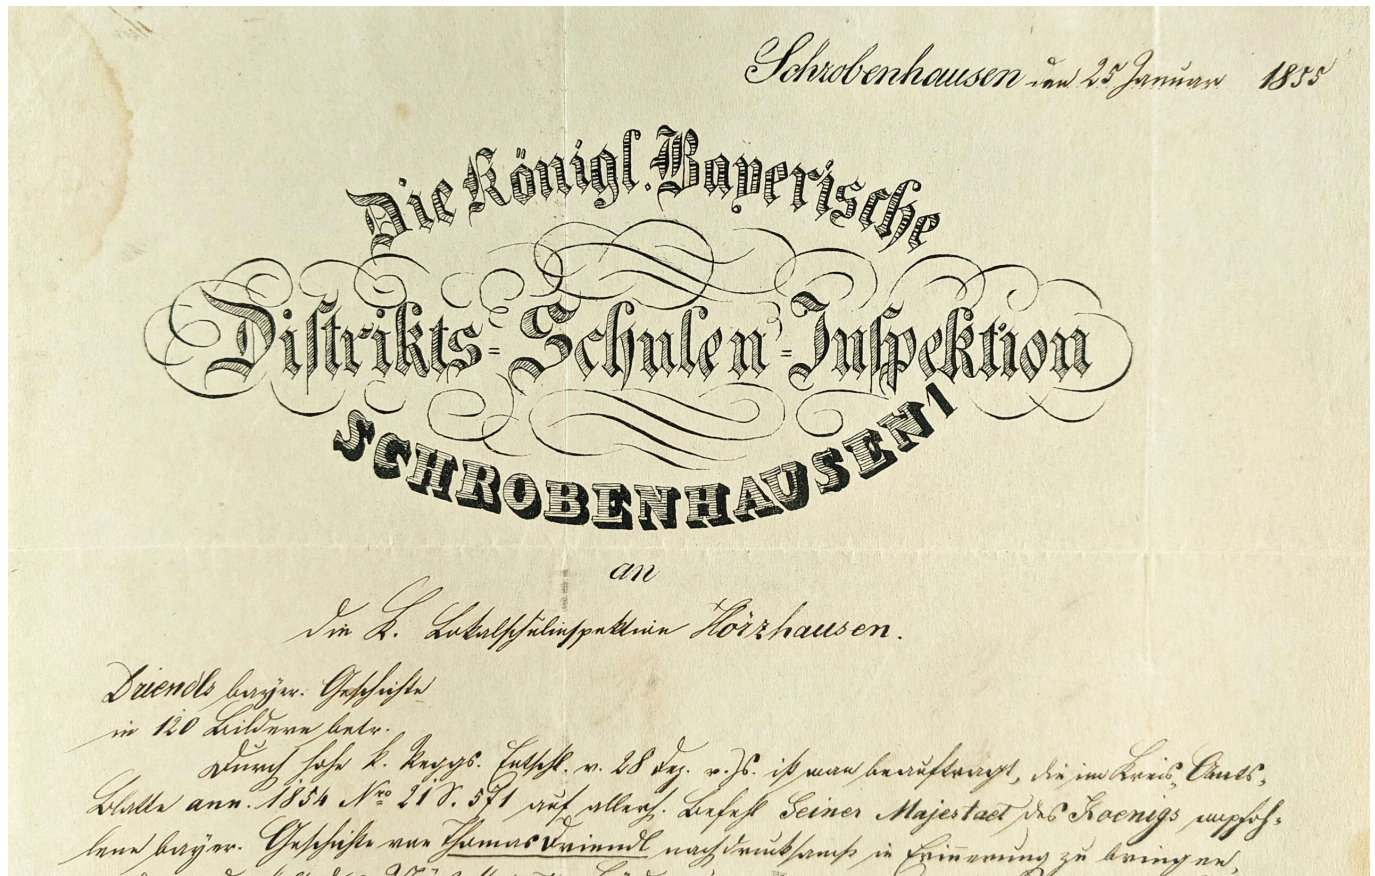 Schrobenhausen den 25 Januar 1855
Die Königl. Bayerische
Distrikts-Schulen-Inspektion
SCHROBENHAUSEN I
an
die K. Lokalschulinspektion Hörzhausen.
Driendls bayer. Geschichte
in 120 Bildern betr.
Durch hohe k. Reggs. Entschl. v. 28 Dez. v. Js. ist man beauftragt, die im Kreis-Amts-
Blatte ann. 1854 Nro 21 S. 571 auf allerh. Befehl Seiner Majestaet des Koenigs empfoh-
lene bayer. Geschichte von Thomas Driendl nachdrucksamst in Erinnerung zu bringen,